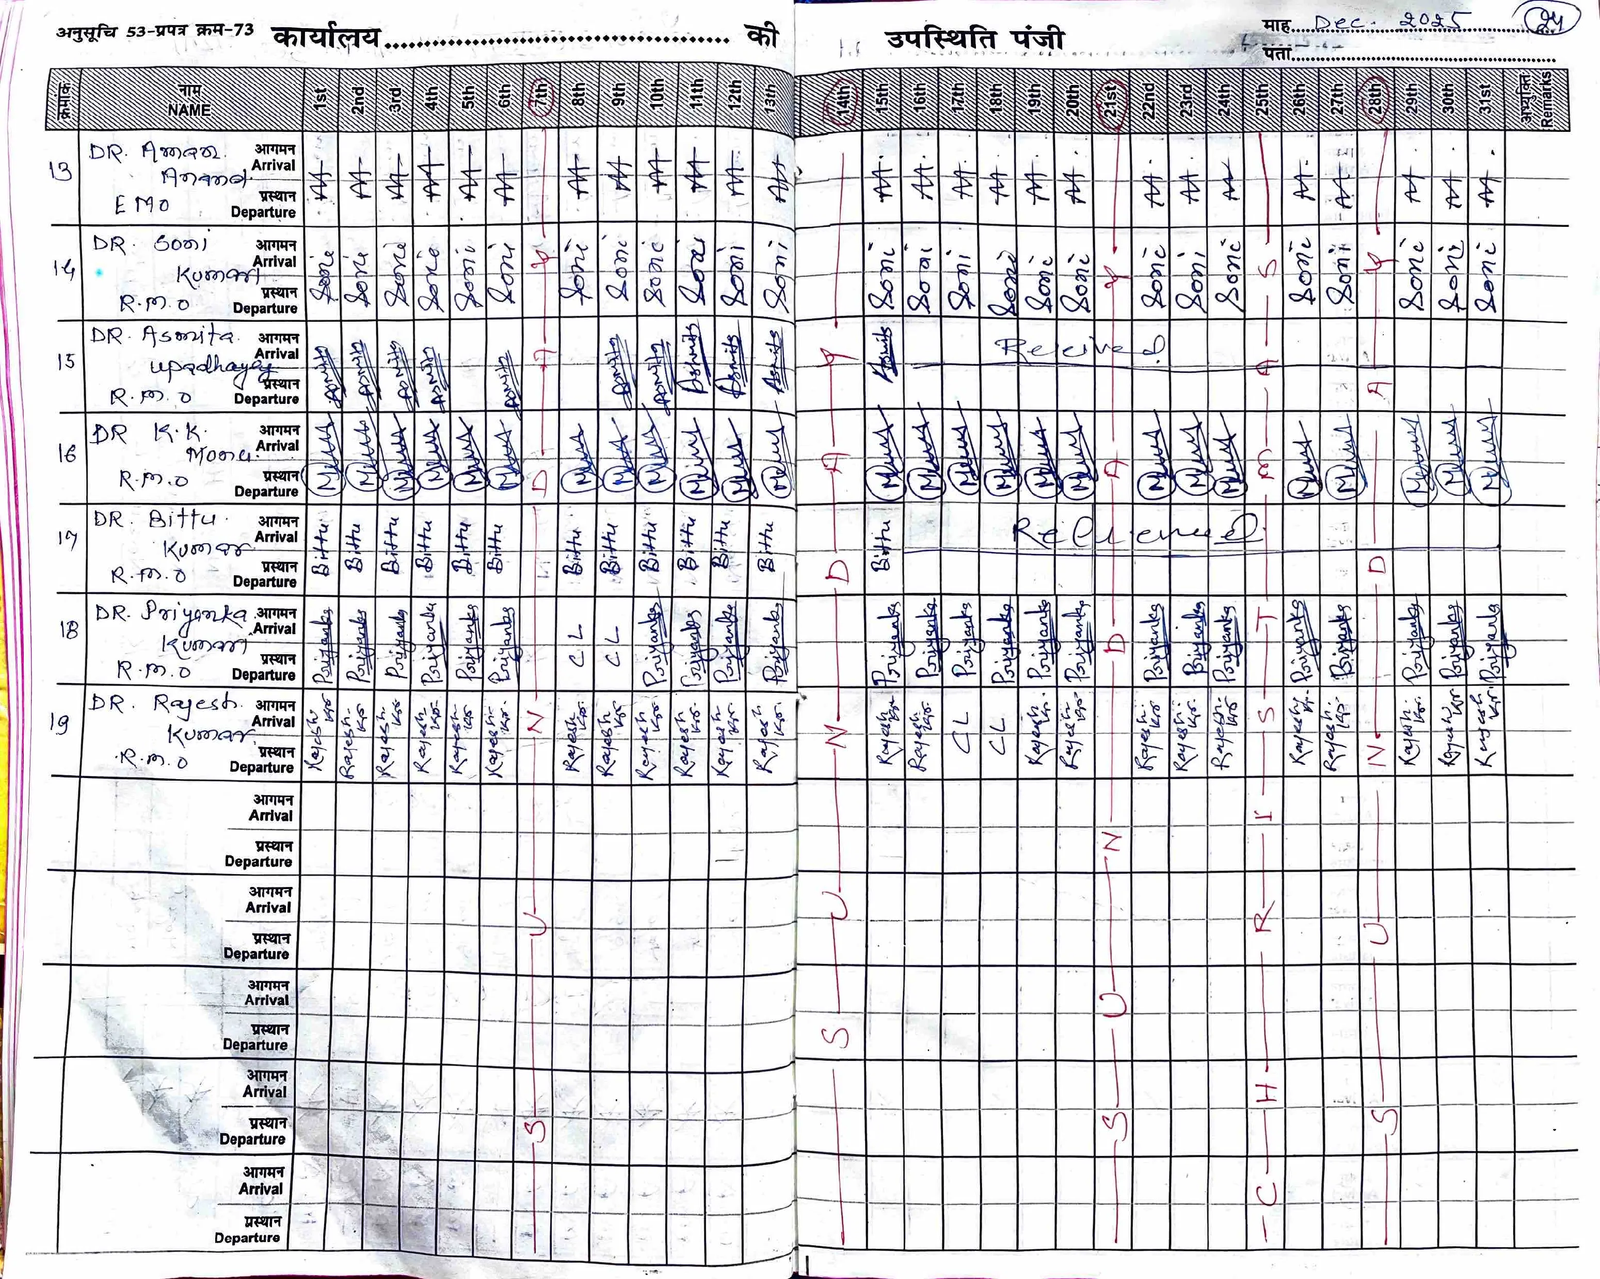 अनुसूचि 53-प्रपत्र क्रम-73 कार्यालय की उपस्थिति पंजी माह Dec. 2025
पता
क्रमांक नाम NAME 1st 2nd 3rd 4th 5th 6th 7th 8th 9th 10th 11th 12th 13th 14th 15th 16th 17th 18th 19th 20th 21st 22nd 23rd 24th 25th 26th 27th 28th 29th 30th 31st अभ्युक्ति Remarks
13 DR. Aman Anand EMO
आगमन Arrival
प्रस्थान Departure
AA AA AA AA AA AA AA AA AA AA AA AA AA AA AA AA AA AA AA AA AA AA AA AA AA AA
14 DR. Soni Kumari R.M.O
आगमन Arrival
प्रस्थान Departure
Soni Soni Soni Soni Soni Soni Soni Soni Soni Soni Soni Soni Soni Soni Soni Soni Soni Soni Soni Soni Soni Soni Soni Soni Soni Soni
15 DR. Asmita Upadhayay R.M.O
आगमन Arrival
प्रस्थान Departure
Asmita Asmita Asmita Asmita Asmita Asmita Asmita Asmita Asmita Asmita Asmita
16 DR K.K. R.M.O
आगमन Arrival
प्रस्थान Departure
17 DR. Bittu Kumar R.M.O
आगमन Arrival
प्रस्थान Departure
Bittu Bittu Bittu Bittu Bittu Bittu Bittu Bittu Bittu Bittu Bittu Bittu Bittu
18 DR. Priyanka Kumari R.M.O
आगमन Arrival
प्रस्थान Departure
Priyanka Priyanka Priyanka Priyanka Priyanka Priyanka CL CL Priyanka Priyanka Priyanka Priyanka Priyanka Priyanka Priyanka Priyanka Priyanka Priyanka Priyanka Priyanka Priyanka Priyanka Priyanka Priyanka Priyanka Priyanka
19 DR. Rajesh Kumar R.M.O
आगमन Arrival
प्रस्थान Departure
Rajesh Rajesh Rajesh Rajesh Rajesh Rajesh Rajesh Rajesh Rajesh Rajesh Rajesh Rajesh Rajesh Rajesh CL CL Rajesh Rajesh Rajesh Rajesh Rajesh Rajesh Rajesh Rajesh Rajesh Rajesh
आगमन Arrival
प्रस्थान Departure
आगमन Arrival
प्रस्थान Departure
आगमन Arrival
प्रस्थान Departure
आगमन Arrival
प्रस्थान Departure
आगमन Arrival
प्रस्थान Departure
SUNDAY
SUNDAY
SUNDAY
CHRISTMAS
SUNDAY